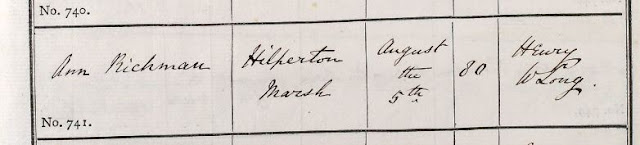 No. 740.
Ann Richman
Hilperton
Marsh
August
the
5th
80
Henry
W Long.
No. 741.